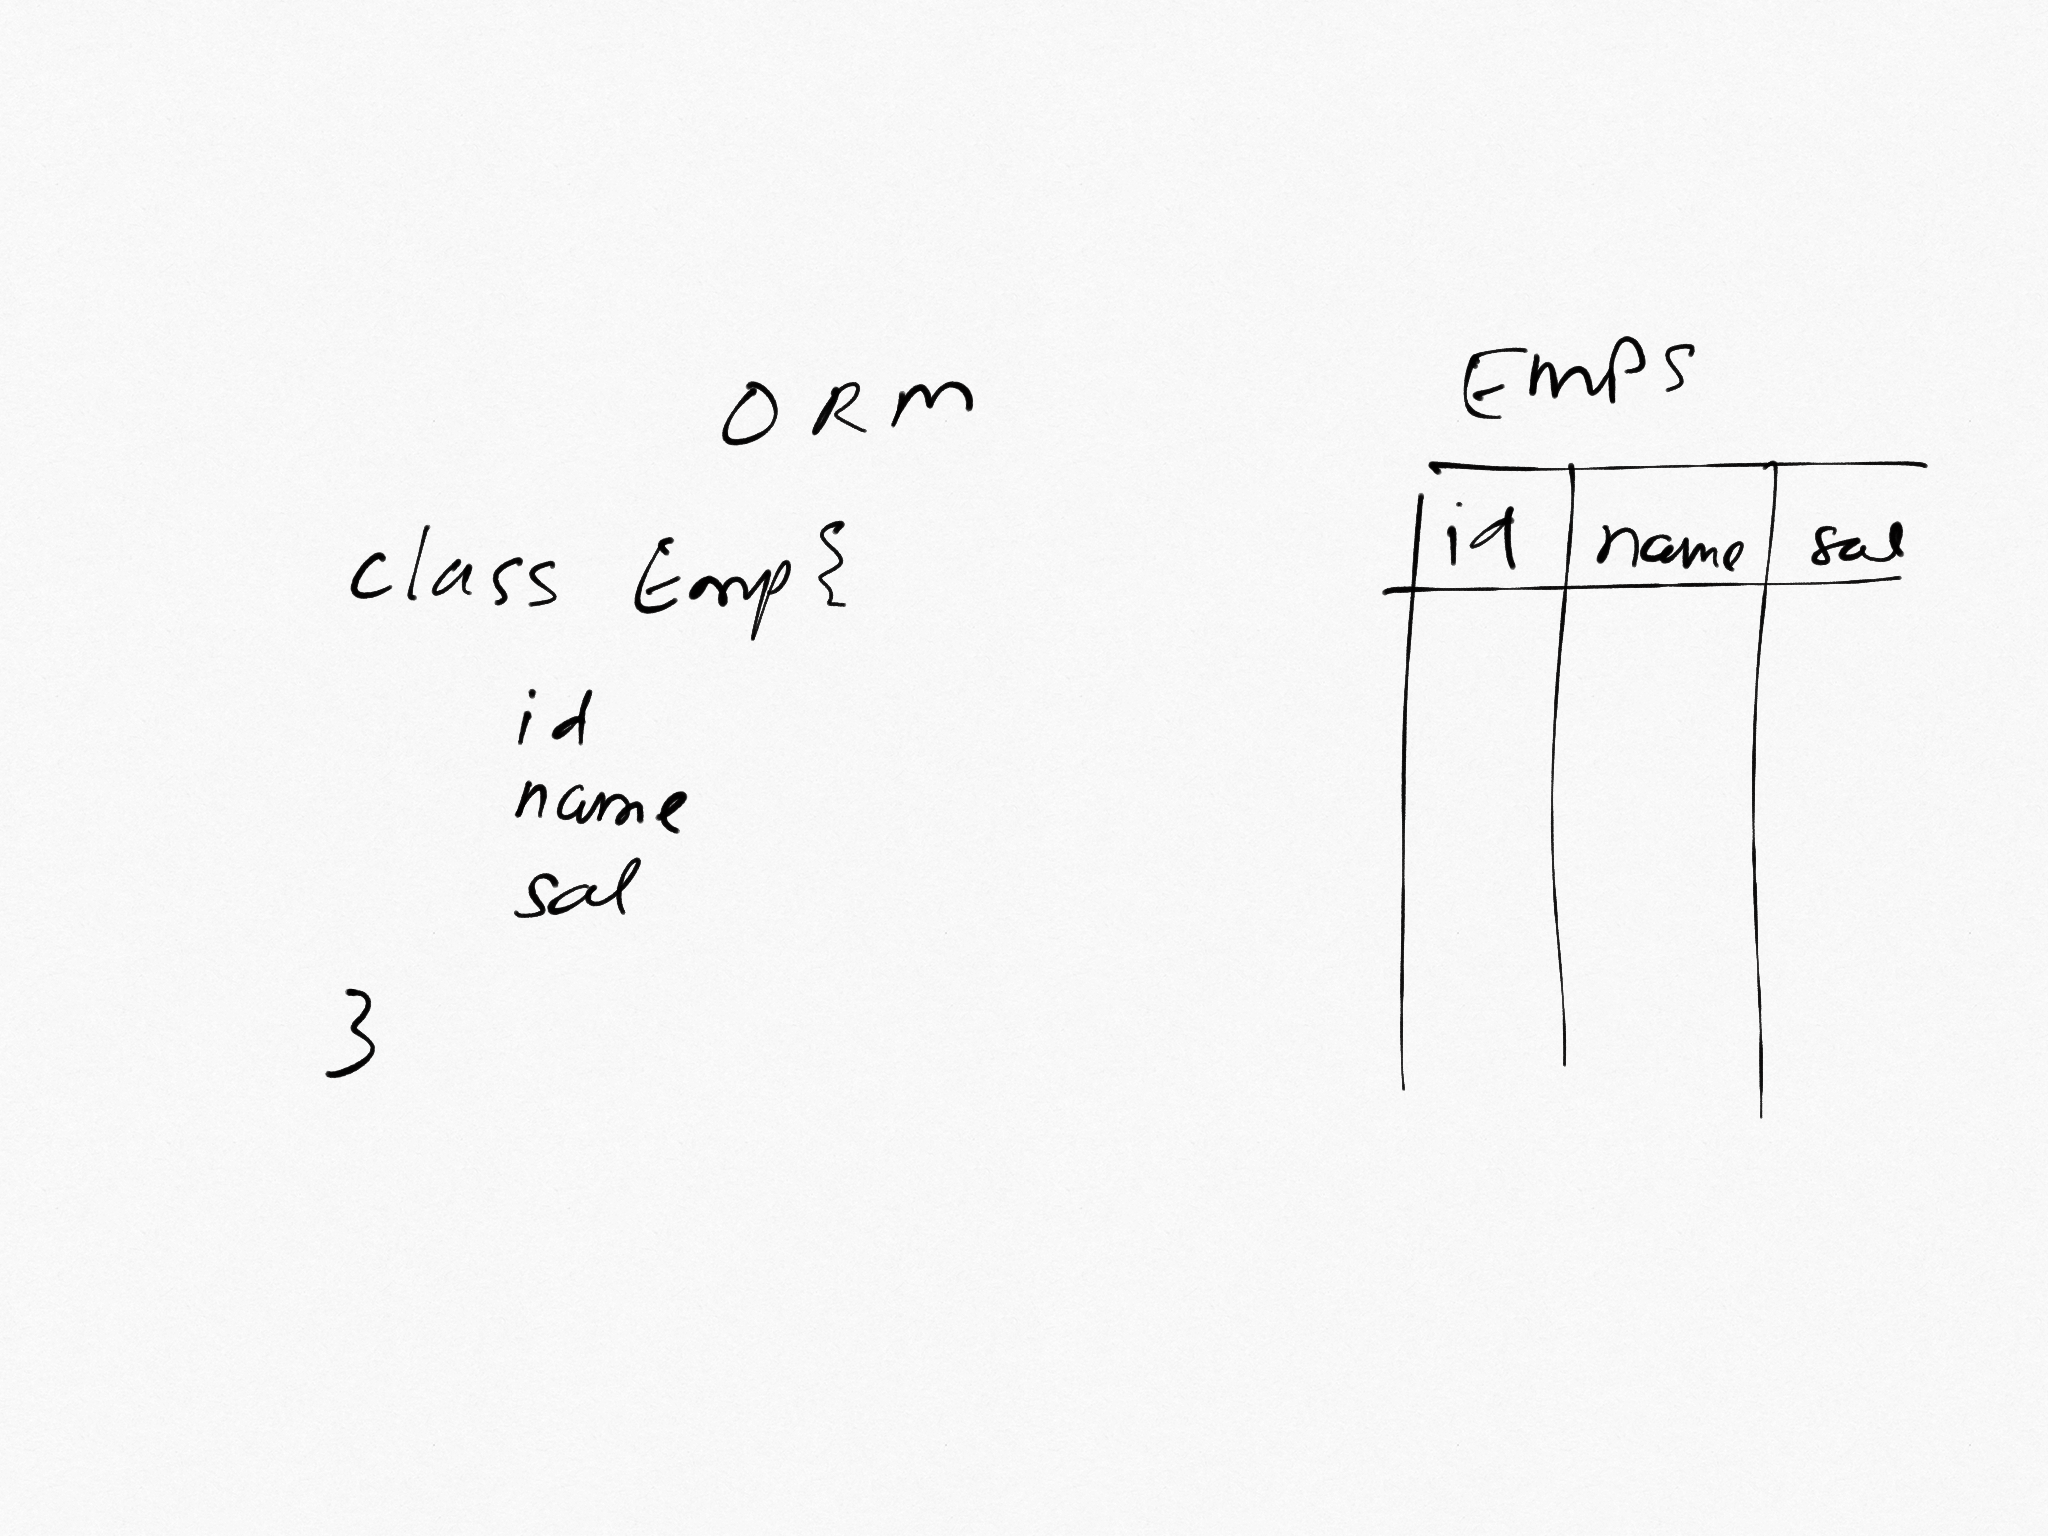 ORM
class Emp{
id
name
sal
}
EMPS
id name sal